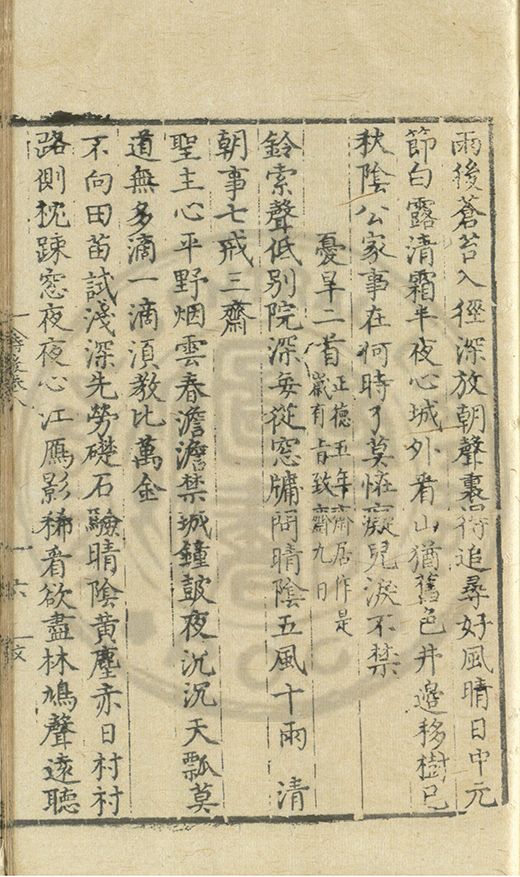 雨後蒼苔入徑深放朝聲裏得追尋好風晴日中元
節白露清霜半夜心城外看山猶舊色井邊移樹已
秋陰公家事在何時了莫怪癡兒淚不禁
憂旱二首正德五年齋居作是
歲有旨致齋九日
鈴索聲低別院深每從窓牖問晴陰五風十雨 清
朝事七戒三齋
聖主心平野烟雲春澹澹禁城鐘鼓夜沉沉天瓢莫
道無多滴一滴須教比萬金
不向田苗試淺深先勞礎石驗晴陰黄塵赤日村村
路側枕踈窓夜夜心江鴈影稀看欲盡林鳩聲遠聽